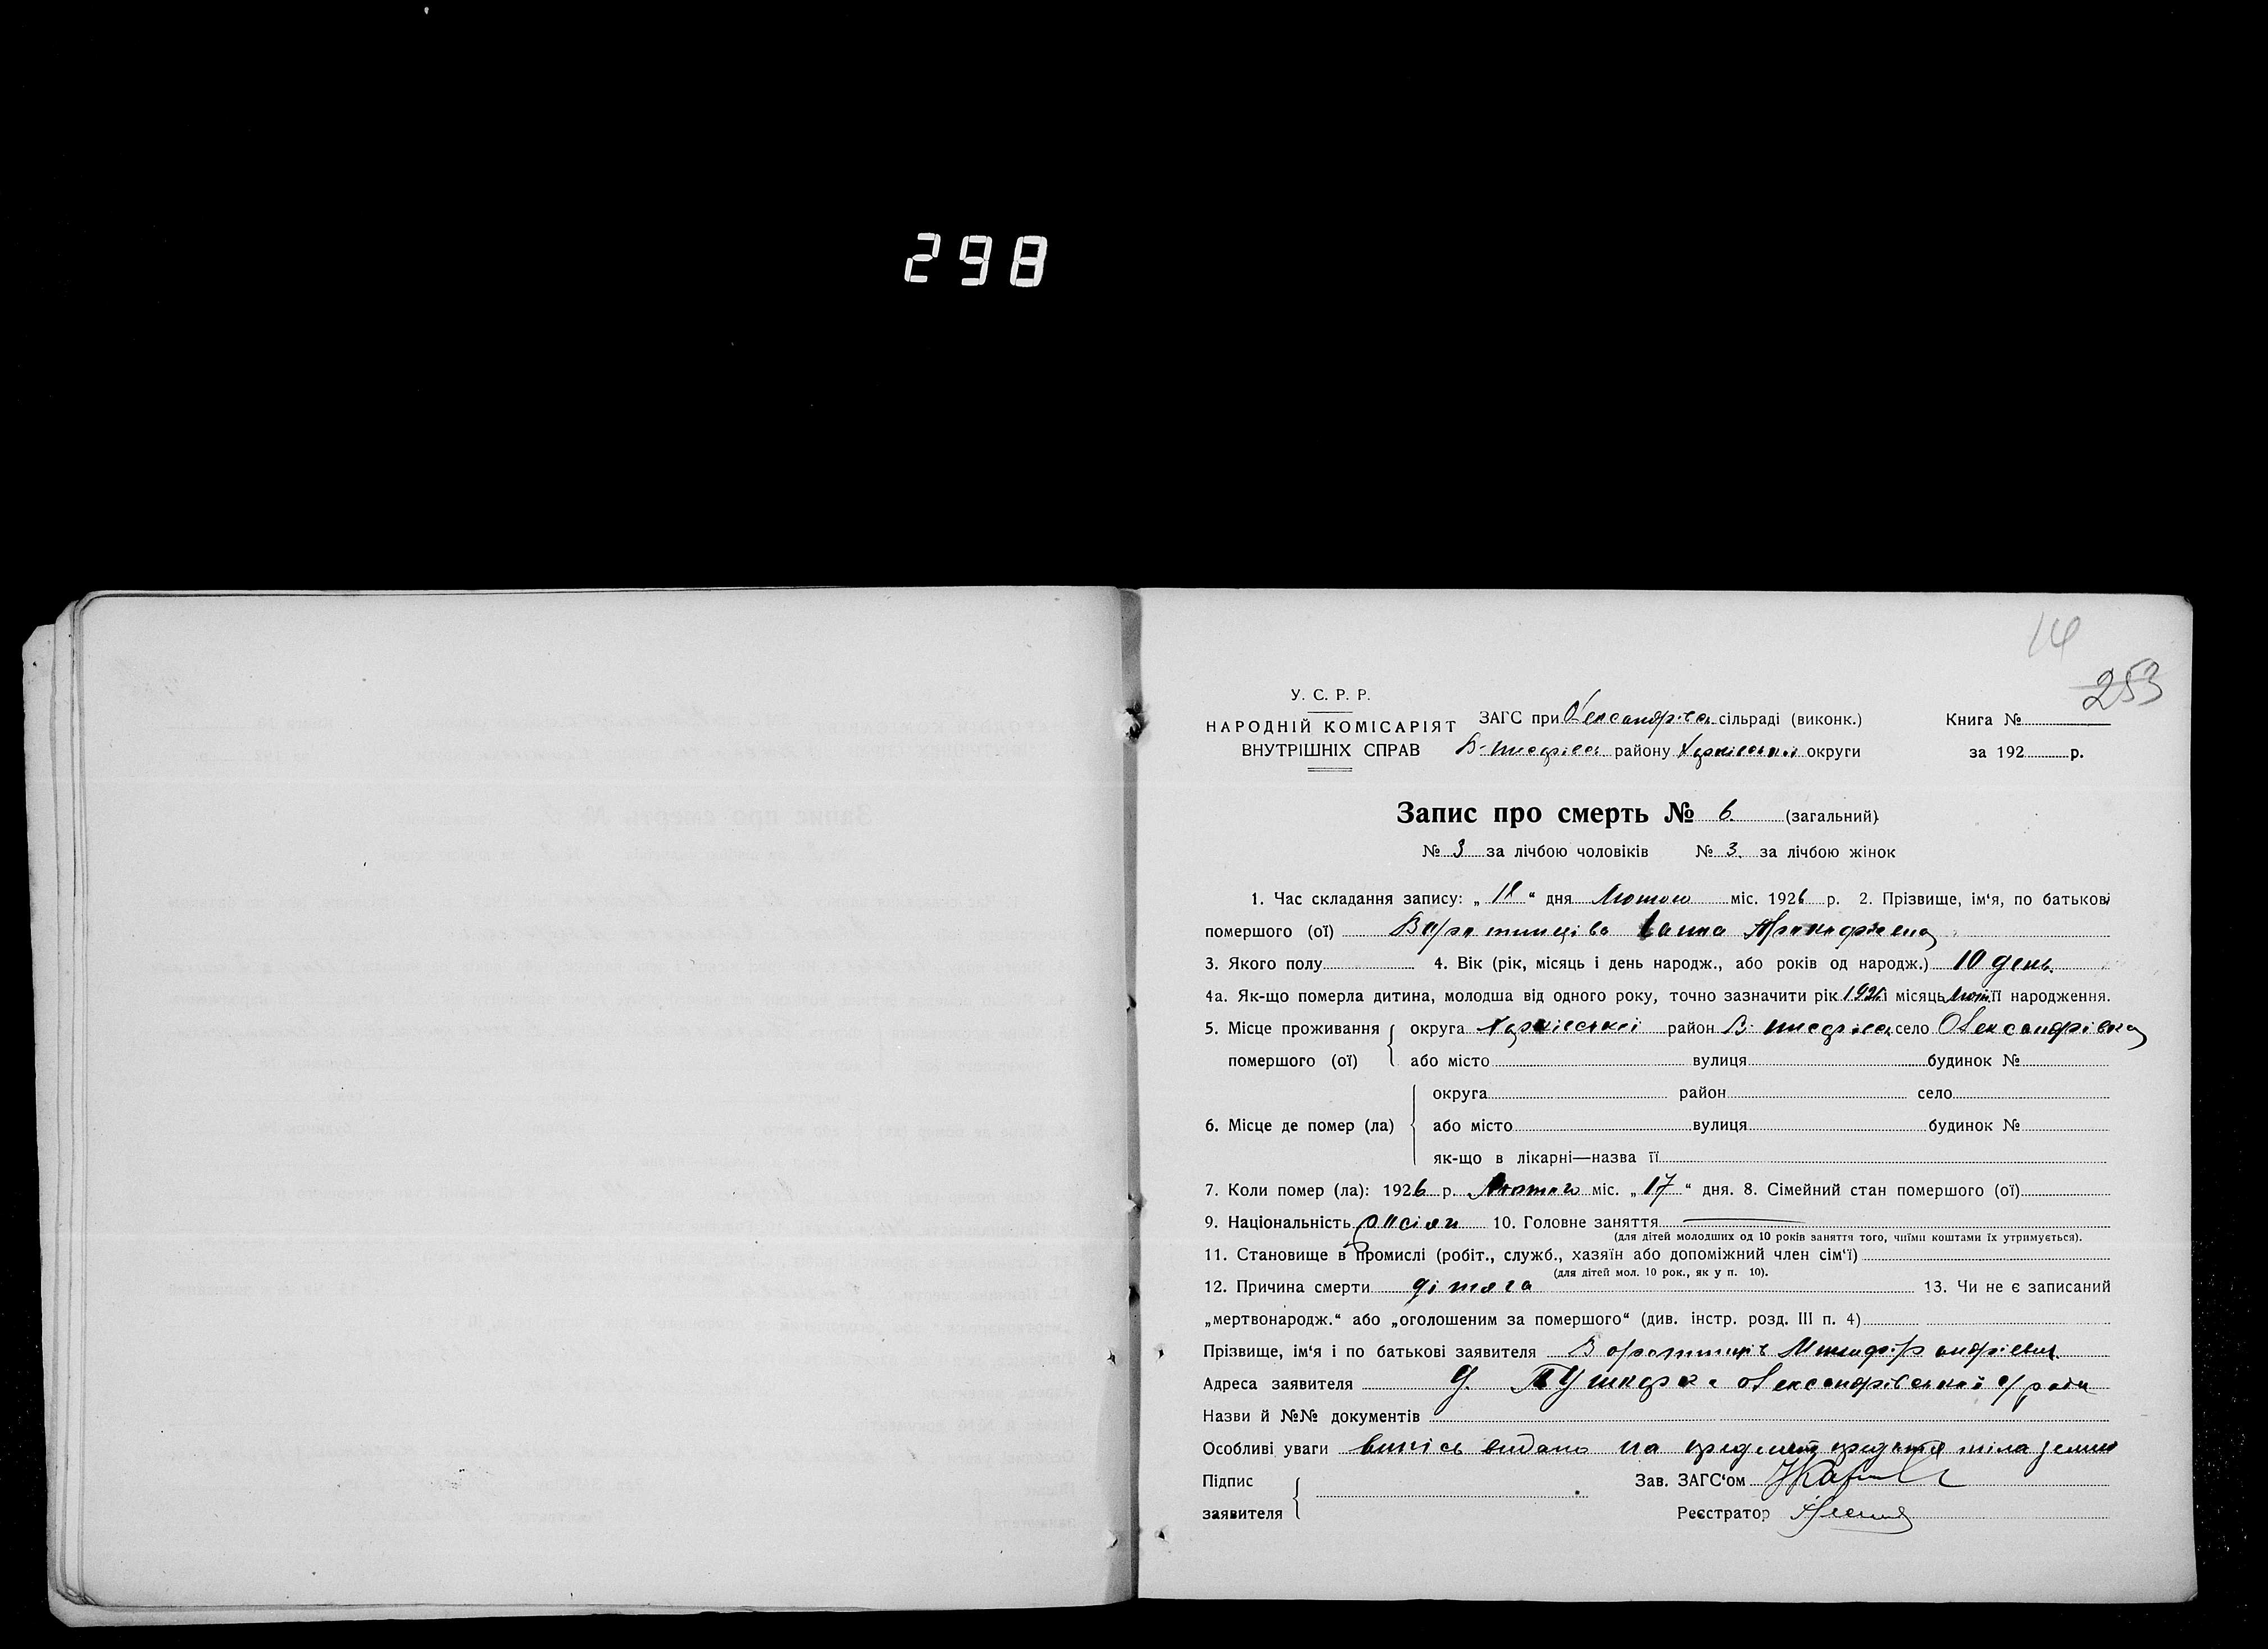 298
14
253
У. С. Р. Р.
НАРОДНІЙ КОМІСАРІЯТ
ВНУТРІШНІХ СПРАВ
ЗАГС при Олександрівск сільраді (виконк.)
району Харківської округи
Книга №
за 192 р.
Запис про смерть № 6. (загальний)
№ 3 за лічбою чоловіків № 3. за лічбою жінок
1. Час складання запису: „ 18 “ дня Лютого міс. 1926 р. 2. Прізвище, ім‘я, по батькові
помершого (ої) Ганна
3. Якого полу 4. Вік (рік, місяць і день народж., або років од народж.) 10 день
4а. Як-що померла дитина, молодша від одного року, точно зазначити рік 1926 і місяць лют. її народження.
5. Місце проживання округа Харківської район село Олександрівка
помершого (ої) або місто вулиця будинок №
округа район село
6. Місце де помер (ла) або місто вулиця будинок №
як-що в лікарні—назва її
7. Коли помер (ла): 1926 р. Лютого міс. „ 17 “ дня. 8. Сімейний стан помершого (ої)
9. Національність 10. Головне заняття
(для дітей молодших од 10 років заняття того, чиїми коштами їх утримується).
11. Становище в промислі (робіт., служб., хазяїн або допоміжний член сім‘ї)
(для дітей мол. 10 рок., як у п. 10).
12. Причина смерти 13. Чи не є записаний
„мертвонародж.“ або „оголошеним за помершого“ (див. інстр. розд. III п. 4)
Прізвище, ім‘я і по батькові заявителя
Адреса заявителя Олександрівської с/ради
Назви й №№ документів
Особливі уваги випісь видано на тіла землі
Підпис
заявителя
Зав. ЗАГС‘ом
Реєстратор